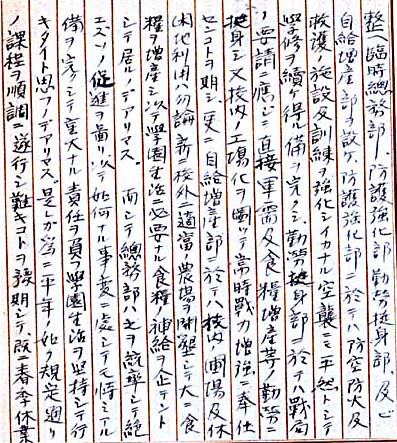 整ヘ臨時総務部ノ防護強化部勤労挺身部、及ビ
自給増産部ヲ設ケ、防護強化部ニ於テハ防空防火及
救護ノ施設及訓練ヲ強化シイカナル空襲ニモ平然トシテ
学修ヲ続ケ得ル備ヲ完クシ、勤労挺身部ニ於テハ戦局
ノ要請ニ應ジ直接軍需及食糧増産等ノ勤労ニ
挺身シ又校内ノ工場化ヲ圖ッテ高時戦力増強ニ奉仕
センコトヲ期シ、更ニ自給増産部ニ於テハ校内圃場及休
閑地利用ハ勿論新ニ校外ニ適當ノ農場ヲ開墾シテ大ニ食
糧増産シ以テ学園生活ニ必要ナル食糧ノ補給ヲ企テント
シテ居ルノデアリマス。而シテ総務部ハ之ヲ統率シテ絶
エズソノ促進ヲ曺リ以テ如何ナル事変ニ處シテモ悖ラザル
備ヲ完クシテ重大ナル責任ヲ負フ学園生活ヲ堅持シテ行
キタイト思フノデアリマス。是レガ為ニ平年ノ如ク規定通リ
ノ課程ヲ順調ニ遂行シ難キコトヲ豫期シテ、既ニ春季休業